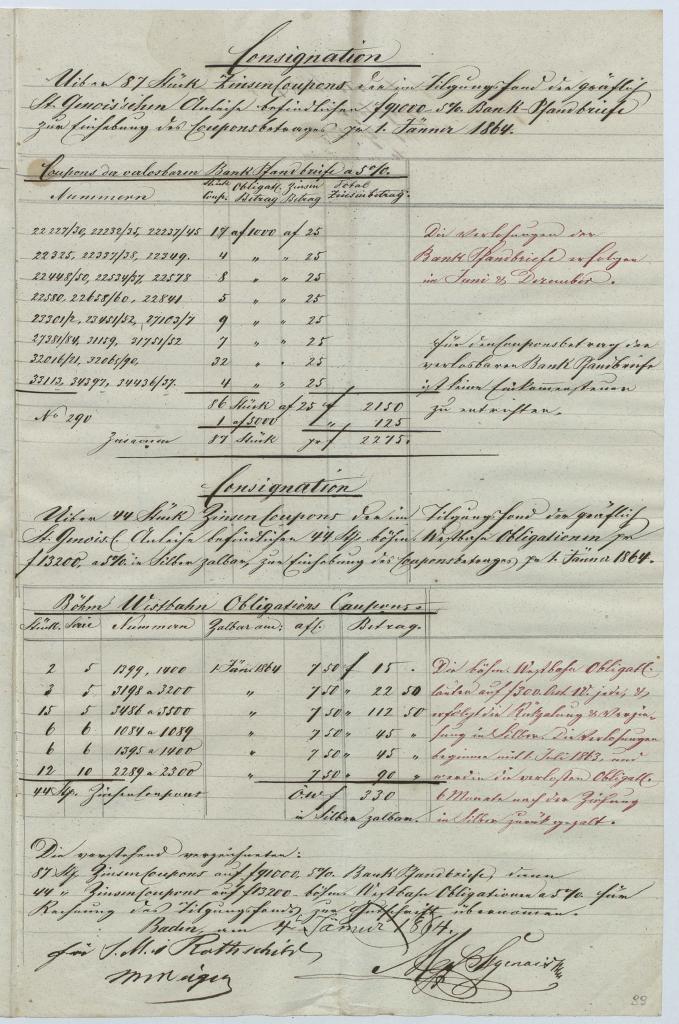 Consignation
Uiber 87 Stück Zinsen Coupons der im Tilgungsfond der gräflich
St. Genois'schen Anleihe befindlichen f 91000 5% Bank-Pfandbriefe
zur Einhebung des Couponsbetrages pr 1. Jänner 1864.
Coupons der valosbaren Bank Pfandbriefe a 5%.
Nummern Stück Coup. Obligatt. Betrag Zinsen Betrag Total Zinsenbetrag.
22227/30, 22232/35, 22237/45 17 af 1000 af 25
22325, 22337/38, 22349. 4 " " 25
22448/50, 22534/37, 22578 8 " " 25
22580, 22658/60, 22841 5 " " 25
23301/2, 23451/52, 27103/7 9 " " 25
27381/84, 31159, 31751/52 7 " " 25
32016/21, 32065/90, 32 " " 25
33113, 34397, 34436/37. 4 " " 25
Die Verlosungen der
Bank Pfandbriefe erfolgen
im Juni & Dezember.
für den Couponsbetrag der
verlosbaren Bank Pfandbriefe
ist keine Einkommensteuer
zu entrichten.
86 Stück af 25 f 2150
No 290 1 af 5000 " 125
Zusammen 87 Stück pr f 2275.
Consignation
Uiber 44 Stück Zinsen Coupons der im Tilgungsfond der gräflich
St. Genois. Anleihe befindlichen 44 Stk. böhm. Westbahn Obligationen pr
f 13200. a 5% in Silber zalbar, zur Einhebung des Couponsbetrages pr 1. Jänner 1864.
Böhm Westbahn Obligations Coupons.
Stück. Serie Nummern Zalbar am: afl. Betrag.
2 5 1399, 1400 1. Jän. 1864 7 50 f 15 "
3 5 3198 a 3200 " 7 50 " 22 50
15 5 3486 a 3500 " 7 50 " 112 50
6 6 1084 a 1089 " 7 50 " 45 "
6 6 1395 a 1400 " 7 50 " 45 "
12 10 2289 a 2300 " 7 50 " 90 "
44 Stk. Zinsen Coupons ÖW f 330
in Silber zalbar.
Die böhm. Westbahn Obligatt.
lauten auf f 300. Öst. W. jede, &
erfolgt die Rükzalung & Verzin-
sung in Silber. Die Verlosungen
beginnen mit 1. Juli 1863. und
werden die verlosten Obligatt.
6 Monate nach der Ziehung
in Silber zurük gezalt.
Die vorstehend verzeichneten:
87 Stk. Zinsen Coupons auf f 91000. 5% Bank Pfandbriefe, dann
44 " Zinsen Coupons auf f 13200 böhm. Westbahn Obligationen a 5% für
Rechnung des Tilgungsfonds zur Gutschrift übernommen.
Baden, am 4. Jänner 1864.
für S. M. v Rothschild